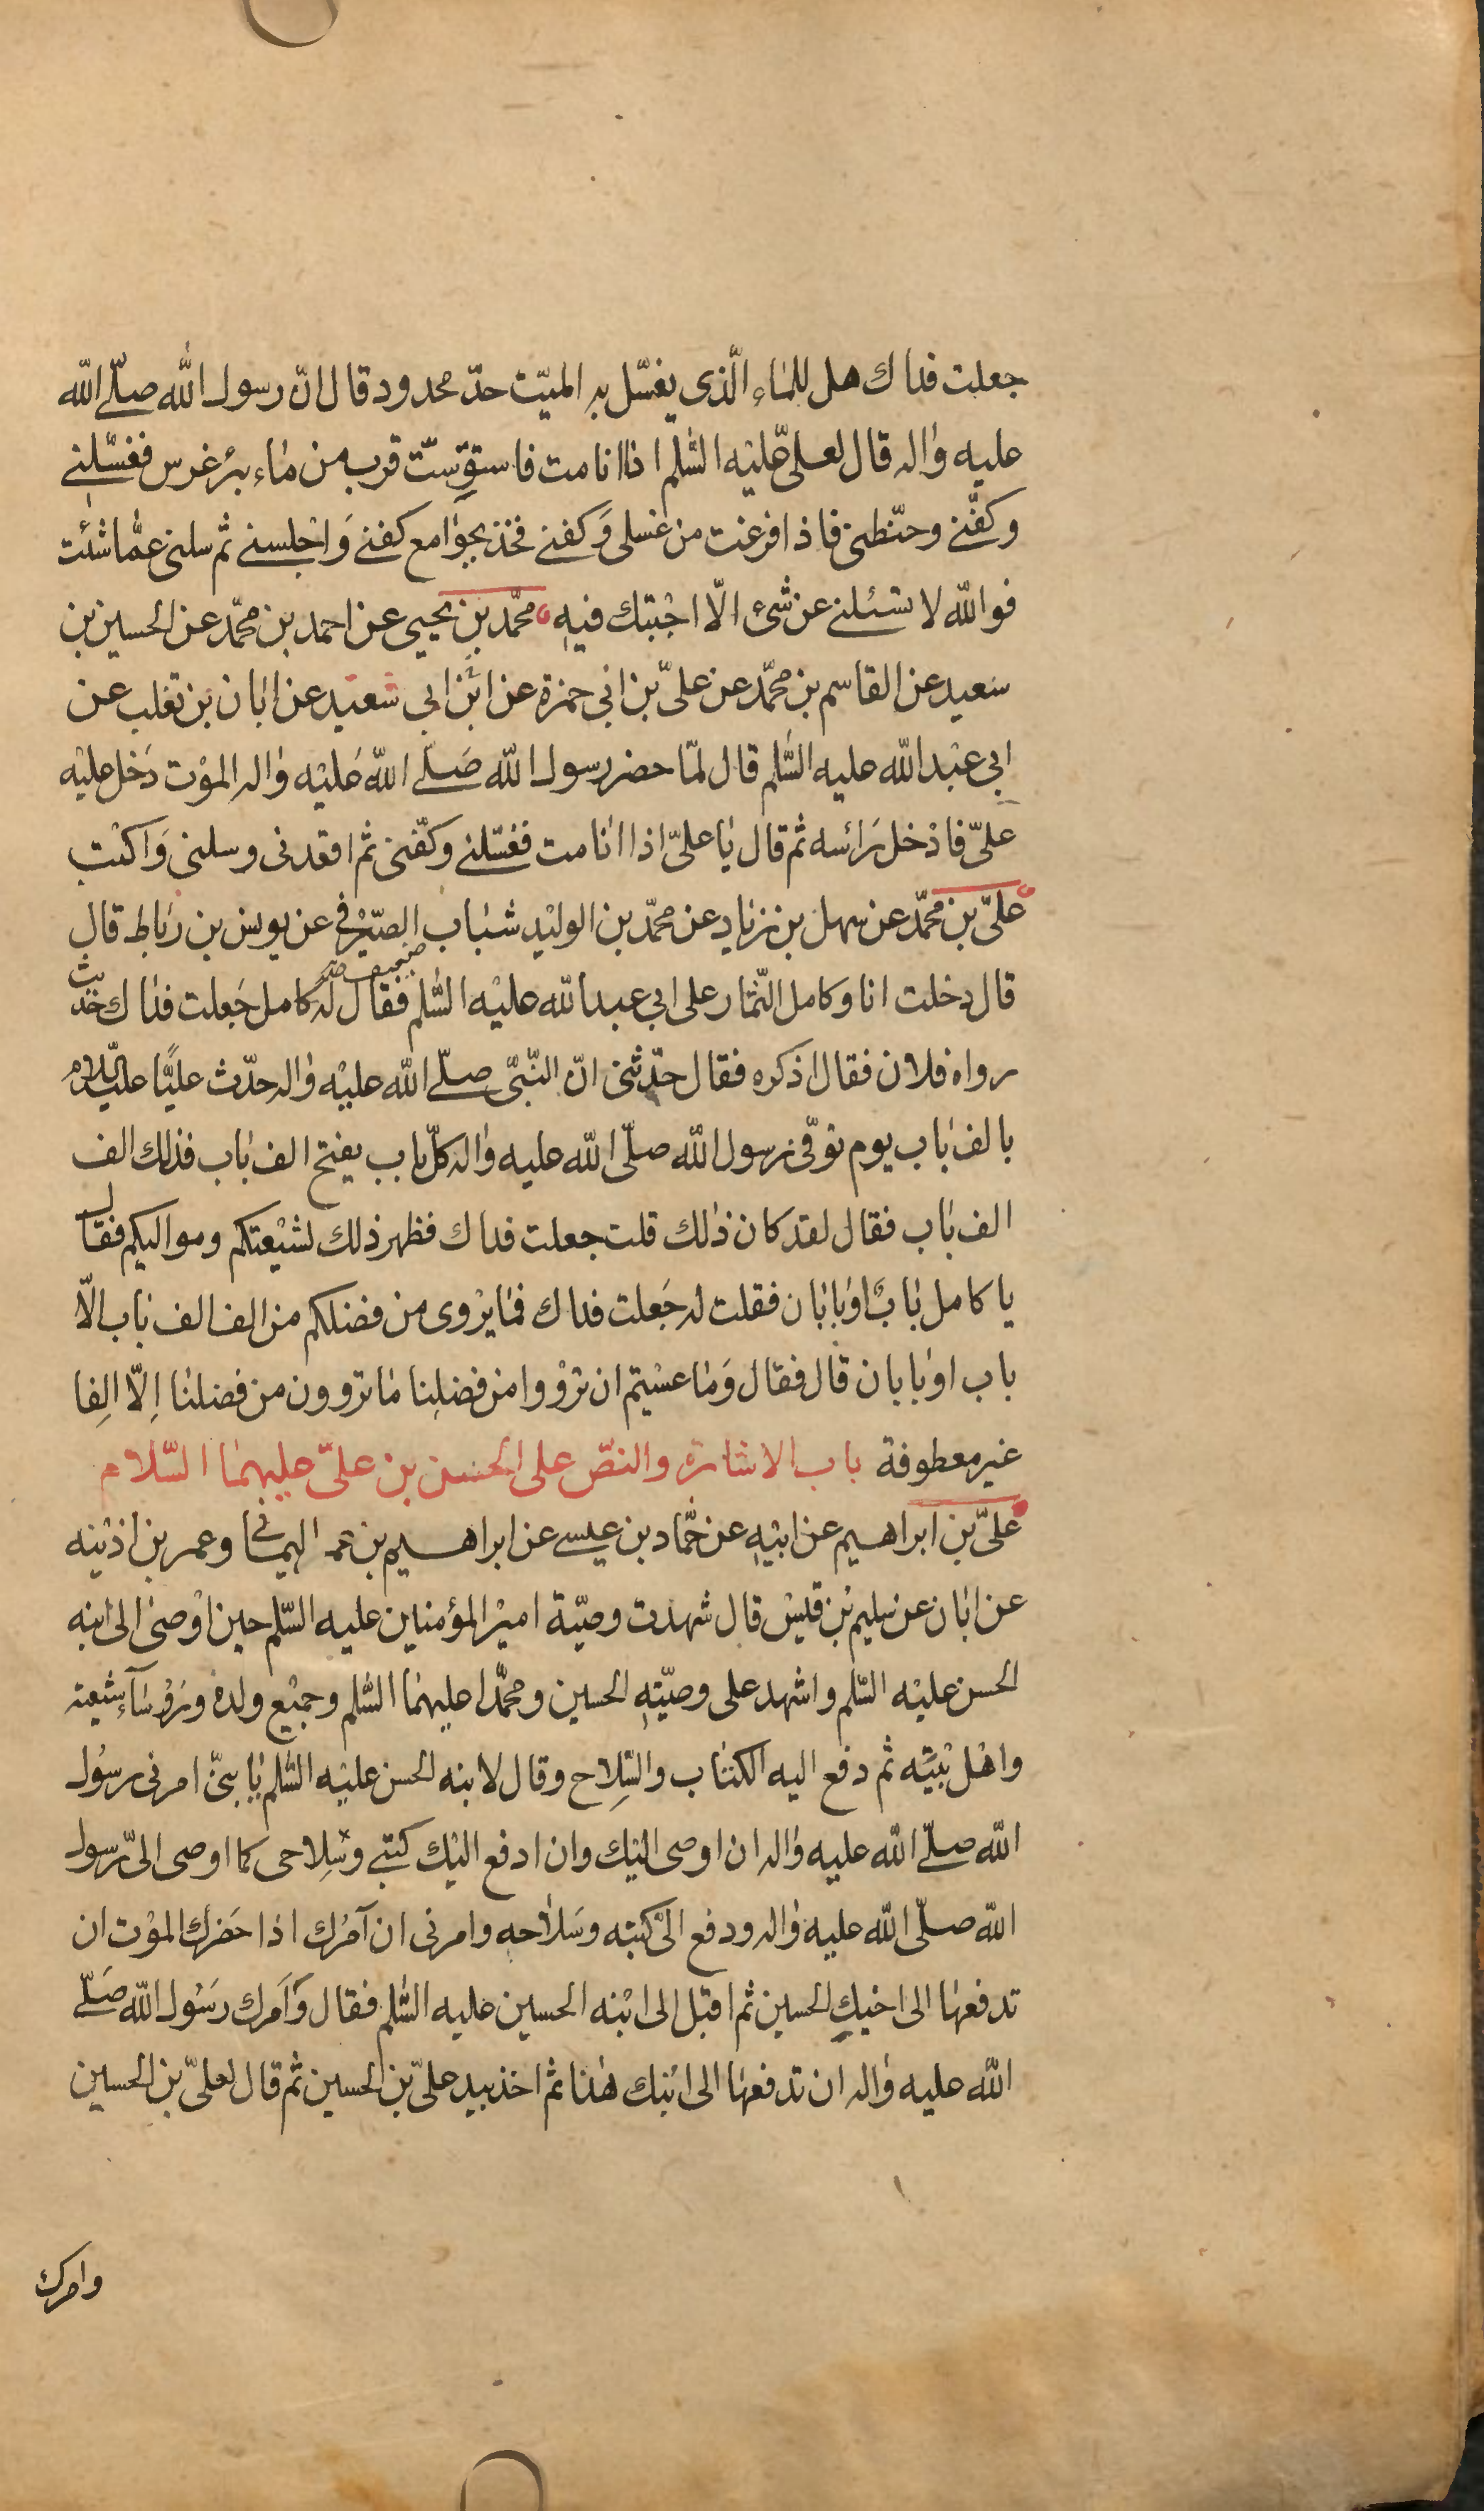 جعلت فداك هل للماء الّذى يغسّل به الميّت حدّ محدود قال انّ رسول الله صلّى الله
عليه واله قال لعلىّ عليه السّلم اذا انا مت فاستق ستّ قرب من ماء بئر غرس فغسّلنى
وكفّنى وحنّطنى فاذا فرغت من غسلى وكفنى فخذ بجوامع كفنى واجلسنى ثم سلنى عمّا شئت
فوالله لا تسئلنى عن شىء الّا اجبتك فيه محمّد بن يحيى عن احمد بن محمّد عن الحسين بن
سعيد عن القاسم بن محمّد عن علىّ بن ابى حمزة عن ابن ابى سعيد عن ابان بن تغلب عن
ابى عبد الله عليه السّلم قال لمّا حضر رسول الله صلّى الله عليه واله الموت دخل عليه
علىّ فادخل رائسه ثم قال يا علىّ اذا انا مت فغسّلنى وكفّنى ثم اقعدنى وسلنى واكتب
علىّ بن محمّد عن سهل بن زياد عن محمّد بن الوليد شباب الصّيرفى عن يونس بن رباط قال
قال دخلت انا وكامل التّمار على ابى عبدالله عليه السّلم فقال له كامل جعلت فداك حديث
رواه فلان فقال اذكره فقال حدّثنى انّ النّبىّ صلّى الله عليه واله حدّث عليًّا عليه السّلام
بالف باب يوم توفّى رسول الله صلّى الله عليه واله كلّ باب يفتح الف باب فذلك الف
الف باب فقال لقد كان ذلك قلت جعلت فداك فظهر ذلك لشيعتكم ومواليكم فقال
يا كامل بابٌ او بابان فقلت له جعلت فداك فما يروى من فضلكم من الف الف باب الّا
باب او بابان قال فقال وما عسيتم ان تروْوا من فضلنا ما تروون من فضلنا اِلّا الِفا
غير معطوفة باب الاشارة والنصّ على الحسن بن علىّ عليهما السّلام
علىّ بن ابراهيم عن ابيه عن حمّاد بن عيسى عن ابراهيم بن عمر اليمانى وعمر بن اذينه
عن ابان عن سليم بن قيس قال شهدت وصيّة امير المؤمنين عليه السّلم حين اوصى الى ابنه
الحسن عليه السّلم واشهد على وصيّته الحسين ومحمّدا عليهما السّلم وجميع ولده ورؤسآء شيعته
واهل بيته ثم دفع اليه الكتاب والسِّلاح وقال لابنه الحسن عليه السّلم يا بنىّ امرنى رسول
الله صلّى الله عليه واله ان اوصى اليك وان ادفع اليك كتبى وسِلاحى كما اوصى الىّ رسول
الله صلّى الله عليه واله ودفع الىّ كتبه وسلاحه وامرنى ان آمرك اذا حضرك الموت ان
تدفعها الى اخيك الحسين ثم اقبل الى ابنه الحسين عليه السّلم فقال وامرك رسول الله صلّى
الله عليه واله ان تدفعها الى ابنك هذا ثم اخذ بيد علىّ بن الحسين ثم قال لعلىّ بن الحسين
وامرك